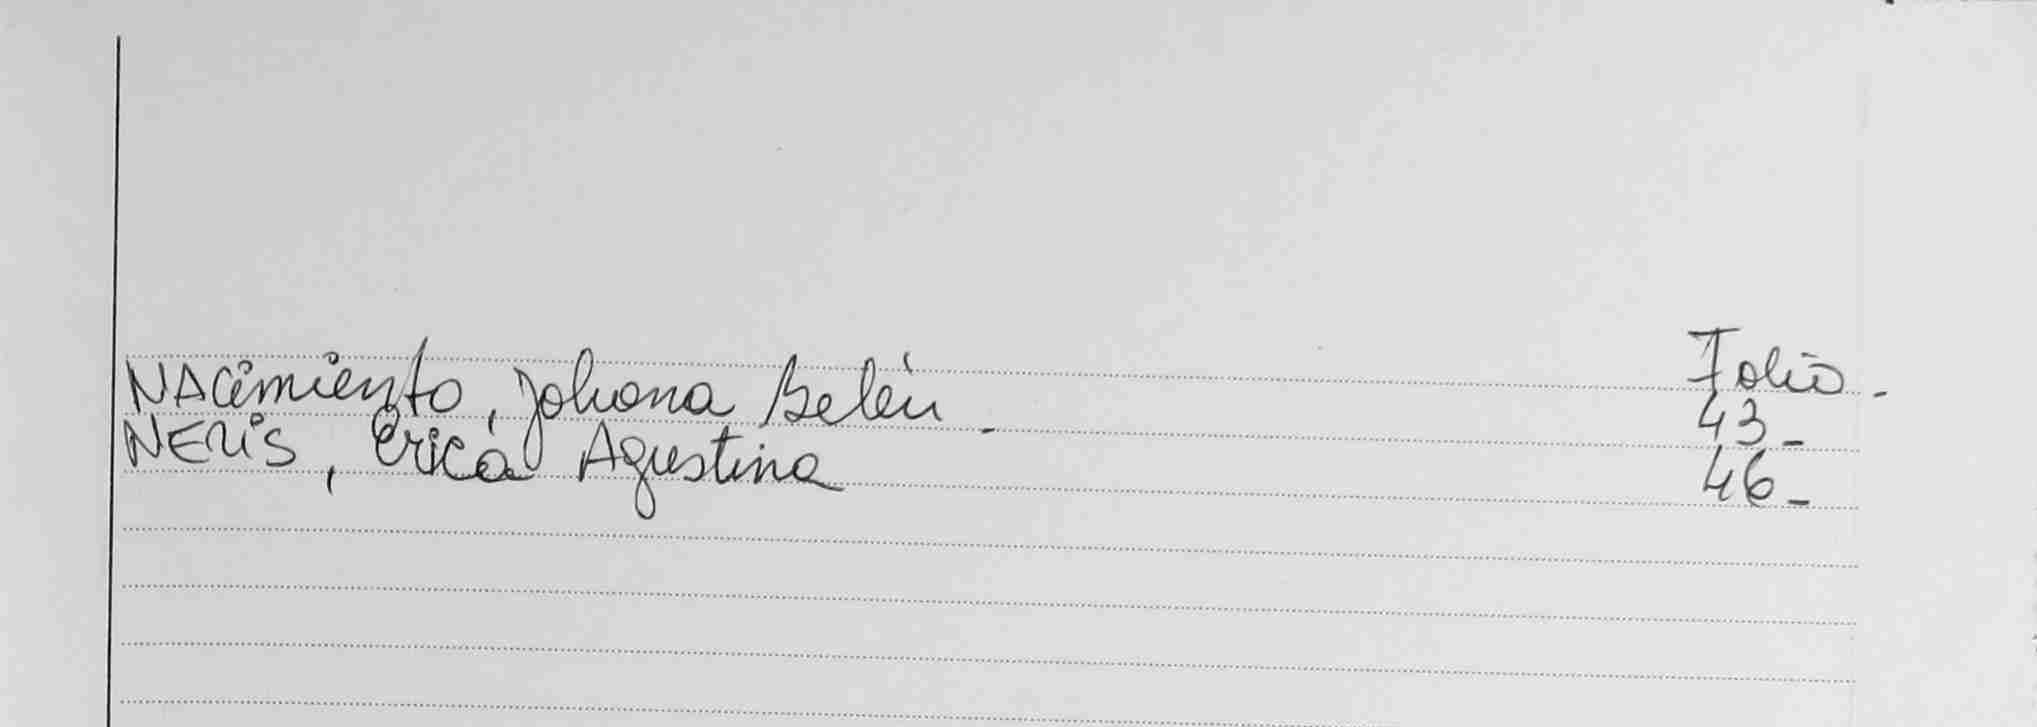 Folio.-
NAcimiento, Johana Belén.- 43-
NERIS, Erica Agustina 46-